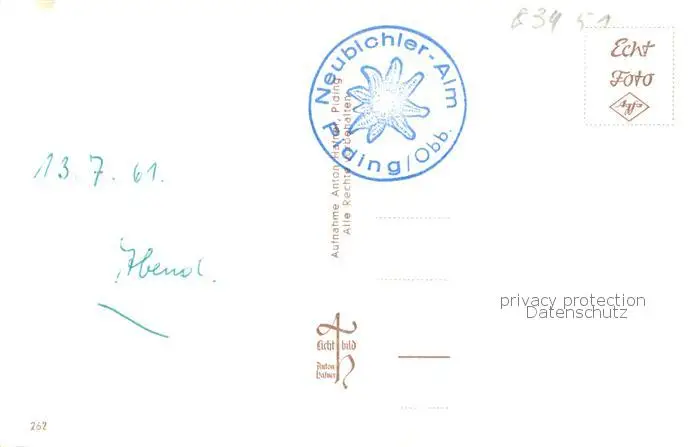 834 51
Echt
Foto
Agfa
Neubichler-Alm
Piding/Obb.
Aufnahme Anton Hafner, Piding
Alle Rechte vorbehalten
13.7.61.
Abend.
privacy protection
Datenschutz
Licht bild
Anton
Hafner
262